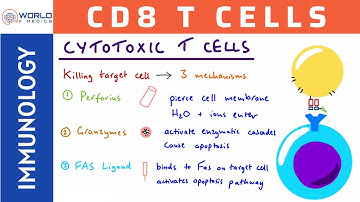 WORLD
OF MEDICS
CD8 T CELLS
IMMUNOLOGY
CYTOTOXIC T CELLS
Killing target cell → 3 mechanisms
① Perforins
pierce cell membrane
H2O + ions enter
② Granzymes
activate enzymatic cascades
cause apoptosis
③ FAS Ligand
binds to Fas on target cell
activates apoptosis pathway